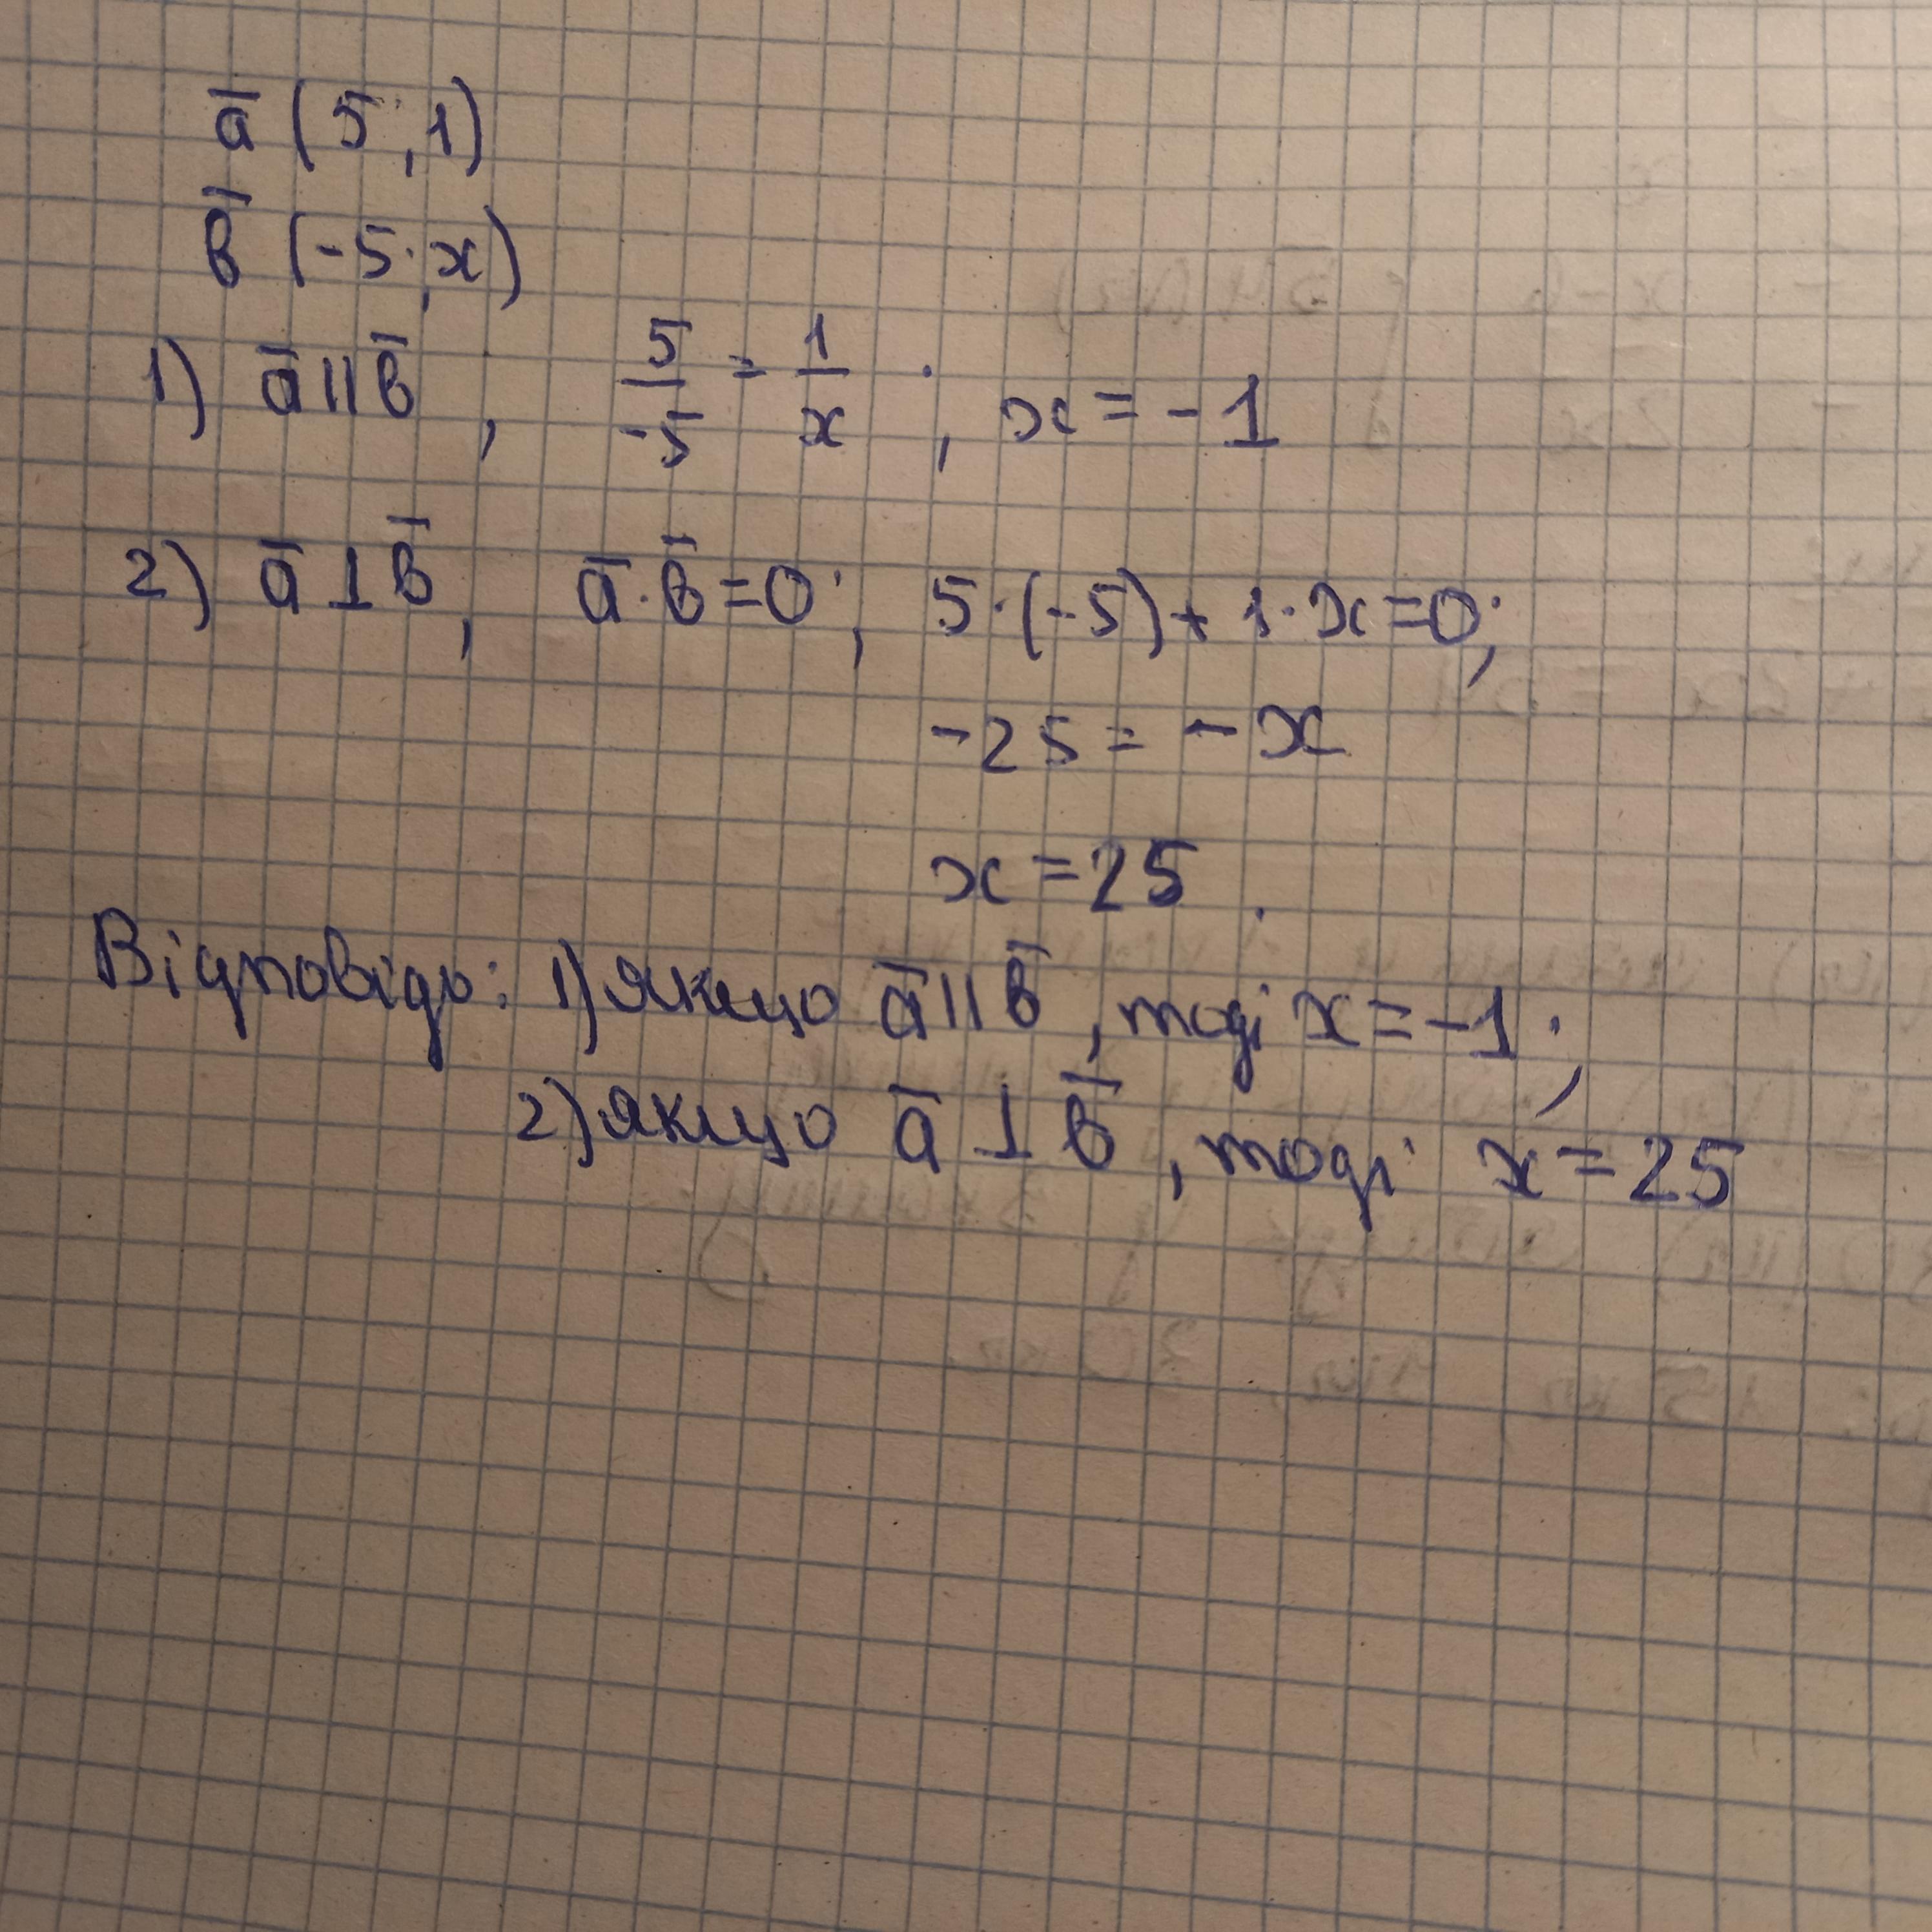 ā (5; 1)
b̄ (-5; x)
1) ā || b̄, 5/-5 = 1/x ; x = -1
2) ā ⊥ b̄, ā · b̄ = 0; 5 · (-5) + 1 · x = 0;
-25 = - x
x = 25.
Відповідь: 1) якщо ā || b̄, тоді x = -1;
2) якщо ā ⊥ b̄, тоді x = 25